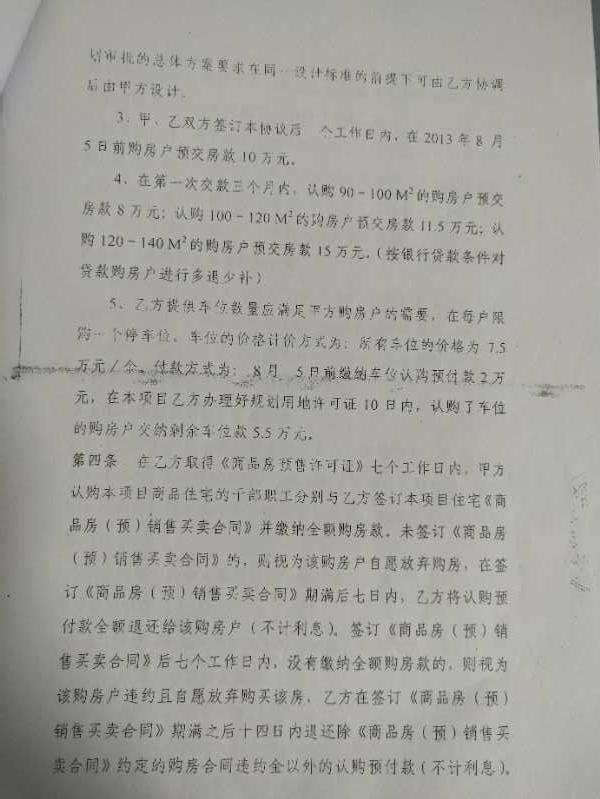 划审批的总体方案要求在同一设计标准的前提下可由乙方协调
后由甲方设计。
3、甲、乙双方签订本协议后 个工作日内，在 2013 年 8 月
5 日前购房户预交房款 10 万元。
4、在第一次交款三个月内，认购 90－100 M²的购房户预交
房款 8 万元；认购 100－120 M²的购房户预交房款 11.5 万元；认
购 120－140 M²的购房户预交房款 15 万元。（按银行贷款条件对
贷款购房户进行多退少补）
5、乙方提供车位数量应满足甲方购房户的需要，在每户限
购一个停车位，车位的价格计价方式为：所有车位的价格为 7.5
万元／个。付款方式为： 8 月 5 日前缴纳车位认购预付款 2 万
元，在本项目乙方办理好规划用地许可证 10 日内，认购了车位
的购房户交纳剩余车位款 5.5 万元。
第四条 在乙方取得《商品房预售许可证》七个工作日内，甲方
认购本项目商品住宅的干部职工分别与乙方签订本项目住宅《商
品房（预）销售买卖合同》并缴纳全额购房款。未签订《商品房
（预）销售买卖合同》的，则视为该购房户自愿放弃购房，在签
订《商品房（预）销售买卖合同》期满后七日内，乙方将认购预
付款全额退还给该购房户（不计利息）。签订《商品房（预）销
售买卖合同》后七个工作日内，没有缴纳全额购房款的，则视为
该购房户违约且自愿放弃购买该房，乙方在签订《商品房（预）
销售买卖合同》期满之后十四日内退还除《商品房（预）销售买
卖合同》约定的购房合同违约金以外的认购预付款（不计利息）。